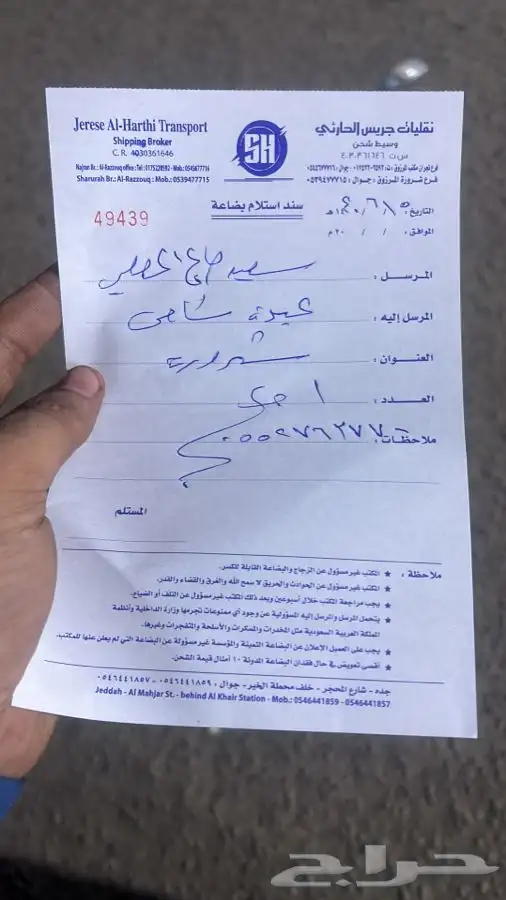 Jerese Al-Harthi Transport
Shipping Broker
C. R. 4030361646
Najran Br.: Al-Razzouq office : Tel : 0175228592 - Mob.: 0545677716
Sharurah Br.: Al-Razzouq : Mob.: 0539477715
SH
نقليات جريس الحارثي
وسيط شحن
س ت ٤٠٣٠٣٦١٦٤٦
فرع شرورة المرزوق : جوال : ٠٥٣٩٤٧٧٧١٥
49439
سند استلام بضاعة
التاريخ:
الموافق: / / ٢٠م
المرسل : سعيد
المرسل إليه : عبيدة
العنوان : شرورة
العدد : ١
ملاحظات :
المستلم
ملاحظة : ★ المكتب غير مسؤول عن الزجاج والبضاعة القابلة للكسر.
★ المكتب غير مسؤول عن الحوادث والحريق لا سمح الله والغرق والقضاء والقدر.
★ يجب مراجعة المكتب خلال أسبوعين وبعد ذلك المكتب غير مسؤول عن التلف أو الضياع.
★ يتحمل المرسل والمرسل إليه المسؤولية عن وجود أي ممنوعات تجرمها وزارة الداخلية وأنظمة
المملكة العربية السعودية مثل المخدرات والمسكرات والأسلحة والمتفجرات وغيرها.
★ يجب على العميل الإعلان عن البضاعة الثمينة والمؤسسة غير مسؤولة عن البضاعة التي لم يعلن عنها للمكتب.
★ أقصى تعويض في حال فقدان البضاعة المدونة ١٠ أمثال قيمة الشحن.
جده - شارع المحجر - خلف محطة الخير - جوال : ٠٥٤٦٤٤١٨٥٩ - ٠٥٤٦٤٤١٨٥٧
Jeddah - Al Mahjar St. - behind Al Khair Station - Mob.: 0546441859 - 0546441857
حراج